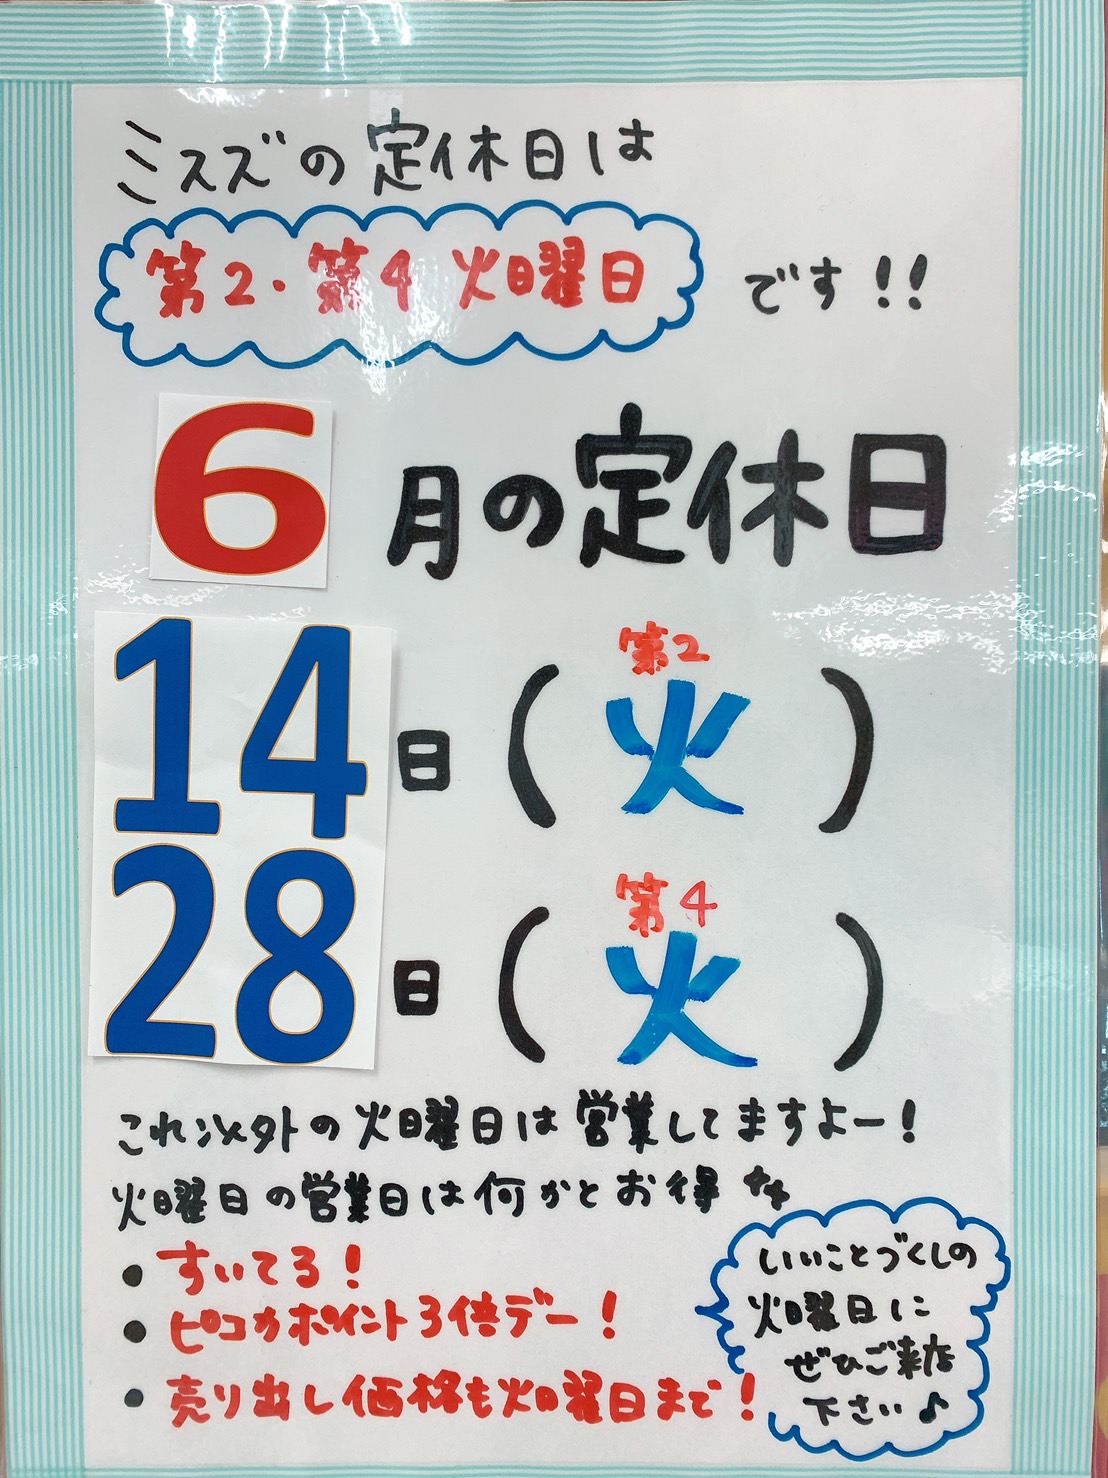 ミスズの定休日は
第2・第4 火曜日 です!!
6月の定休日
14日(第2 火)
28日(第4 火)
これ以外の火曜日は営業してますよー!
火曜日の営業日は何かとお得
・すいてる!
・ピコカポイント3倍デー!
・売り出し価格も火曜日まで!
いいことづくしの
火曜日に
ぜひご来店
下さい♪